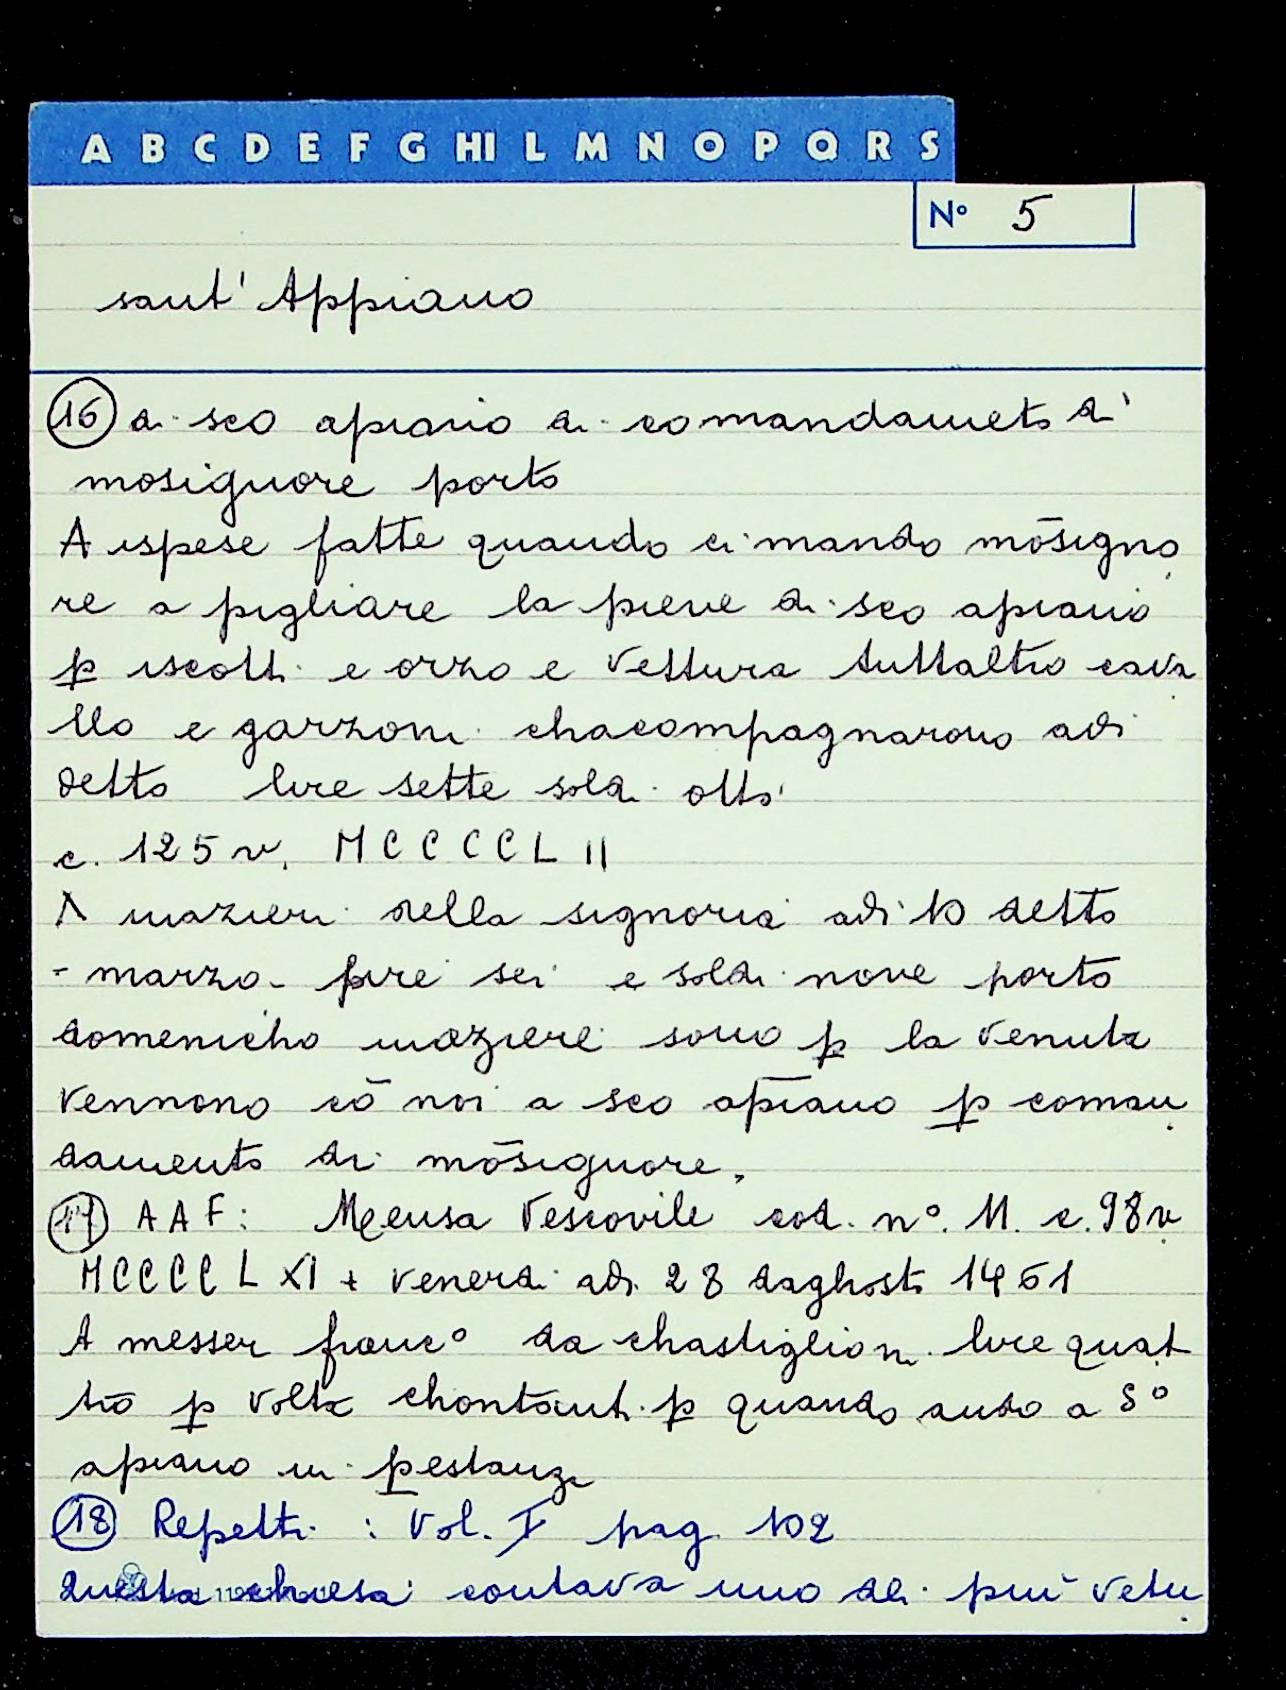 A B C D E F G HI L M N O P Q R S
N° 5
sant' Appiano
16 di sco apiano di comandameto di
mosignore porto
A ispese fatte quando ci mando mōsigno
re a pigliare la pieve di sco apiano
p iscotti e orzo e vettura tuttaltro cava
llo e garzoni chacompagnarono adi
detto lire sette soldi otto
c. 125 v. MCCCCLII
A mazieri della signoria adi 10 detto
- marzo - lire sei e soldi nove porto
domenicho maziere sono p la venuta
vennono cō noi a sco apiano p coman
damento di mōsignore.
17 AAF: Mensa Vescovile cod. n°. 11. c. 98v
MCCCCLXI + venerdi adi 28 daghosto 1461
A messer franc° da chastiglioni lire quat
tro p volta chontanti p quando ando a S°
apiano in pestanza
18 Repetti : Vol. I pag. 102
questa chiesa contava uno dei più vetu